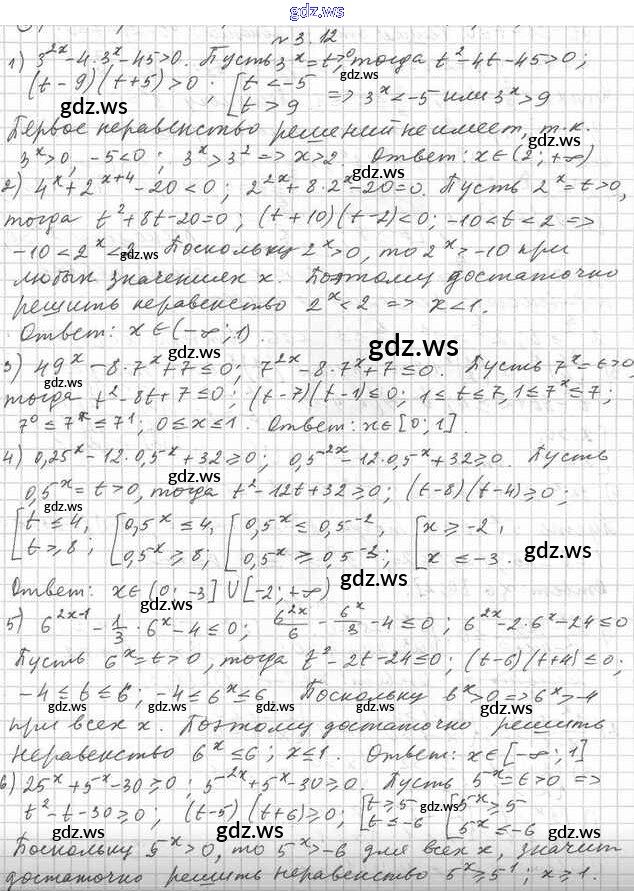 gdz.ws
n 3. 12
1) 3^{2x}-4·3^x-45>0. Пусть 3^x=t>0, тогда t^2-4t-45>0;
(t-9)(t+5)>0; [t<-5 t>9 => 3^x<-5 или 3^x>9
gdz.ws gdz.ws
Первое неравенство решений не имеет, т.к.
3^x>0, -5<0; 3^x>3^2 => x>2. Ответ: x∈(2; +∞)
gdz.ws gdz.ws
2) 4^x+2^{x+4}-20<0; 2^{2x}+8·2^x-20=0. Пусть 2^x=t>0,
тогда t^2+8t-20=0; (t+10)(t-2)<0; -10<t<2 =>
-10<2^x<2. Поскольку 2^x>0, то 2^x>-10 при
gdz.ws gdz.ws
любых значениях x. Поэтому достаточно
решить неравенство 2^x<2 => x<1.
Ответ: x∈(-∞; 1).
gdz.ws gdz.ws
3) 49^x-8·7^x+7≤0; 7^{2x}-8·7^x+7≤0. Пусть 7^x=t>0,
gdz.ws gdz.ws
тогда t^2-8t+7≤0; (t-7)(t-1)≤0; 1≤t≤7, 1≤7^x≤7;
7^0≤7^x≤7^1; 0≤x≤1. Ответ: x∈[0; 1].
gdz.ws gdz.ws
4) 0,25^x-12·0,5^x+32≥0; 0,5^{2x}-12·0,5^x+32≥0. Пусть
gdz.ws
0,5^x=t>0, тогда t^2-12t+32≥0; (t-8)(t-4)≥0;
gdz.ws gdz.ws
[t≤4, [0,5^x≤4, [0,5^x≤0,5^{-2}, [x≥-2,
t≥8; 0,5^x≥8; 0,5^x≥0,5^{-3}; x≤-3.
gdz.ws
Ответ: x∈(0; -3]∪[-2; +∞)
gdz.ws gdz.ws
5) 6^{2x-1}-1/3·6^x-4≤0; 6^{2x}/6-6^x/3-4≤0; 6^{2x}-2·6^x-24≤0
gdz.ws gdz.ws
Пусть 6^x=t>0, тогда t^2-2t-24≤0; (t-6)(t+4)≤0;
gdz.ws
-4≤t≤6; -4≤6^x≤6. Поскольку 6^x>0 => 6^x>-4
gdz.ws gdz.ws
при всех x. Поэтому достаточно решить
gdz.ws
неравенство 6^x≤6; x≤1. Ответ: x∈[-∞; 1]
gdz.ws gdz.ws
6) 25^x+5^x-30≥0; 5^{2x}+5^x-30≥0. Пусть 5^x=t>0 =>
t^2-t-30≥0; (t-5)(t+6)≥0; [t≥5 t≤-6 [5^x≥5 5^x≤-6
gdz.ws gdz.ws gdz.ws
Поскольку 5^x>0, то 5^x>-6 для всех x, значит
gdz.ws gdz.ws
достаточно решить неравенство 5^x≥5^1; x≥1.
gdz.ws